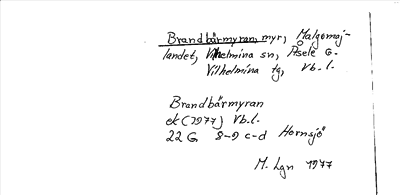 Brandbärmyran, myr, Malgomaj-
landet, Vilhelmina sn, Åsele G.
Vilhelmina tg, Vb.l.
Brandbärmyran
ek (1977) Vb.l.
22 G 8-9 c-d Hornsjö
M. Lgn 1977